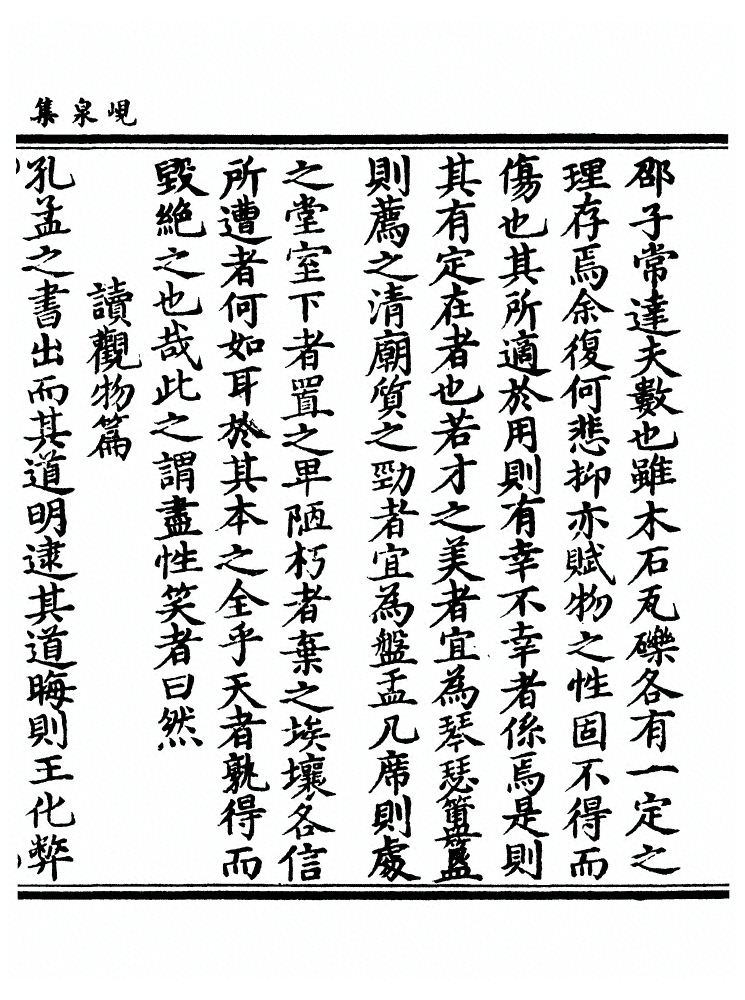 峴泉集
邵子常達夫數也雖木石瓦礫各有一定之
理存焉余復何悲抑亦賦物之性固不得而
傷也其所適於用則有幸不幸者係焉是則
其有定在者也若才之美者宜為琴瑟簠簋
則薦之清廟質之勁者宜為盤盂几席則處
之堂室下者置之卑陋朽者棄之埃壤各信
所遭者何如耳於其本之全乎天者孰得而
毀絶之也哉此之謂盡性笑者曰然
讀觀物篇
孔孟之書出而其道明逮其道晦則王化弊